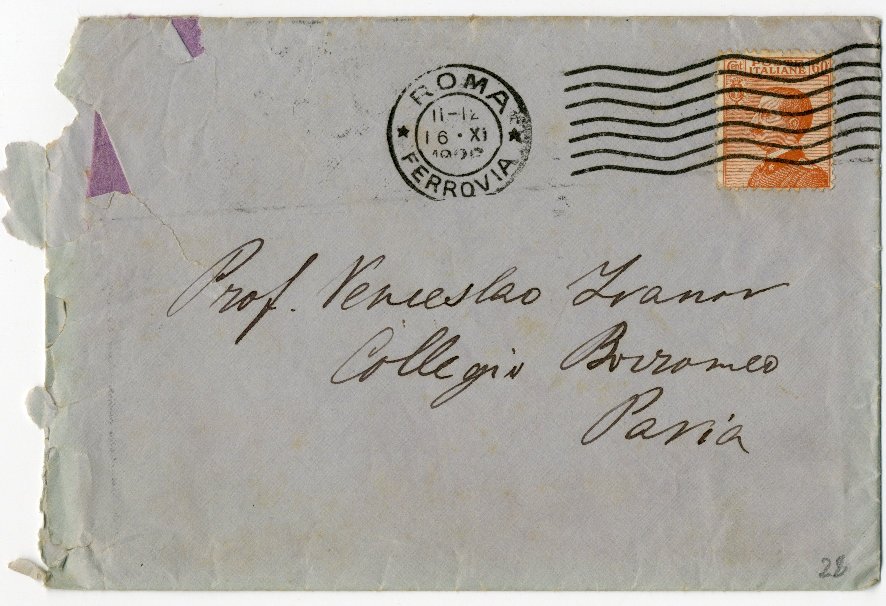 ROMA
11-12
16 · XI
FERROVIA
Cent. POSTE 60
ITALIANE
Prof. Venceslao Ivanov
Collegio Borromeo
Pavia
28